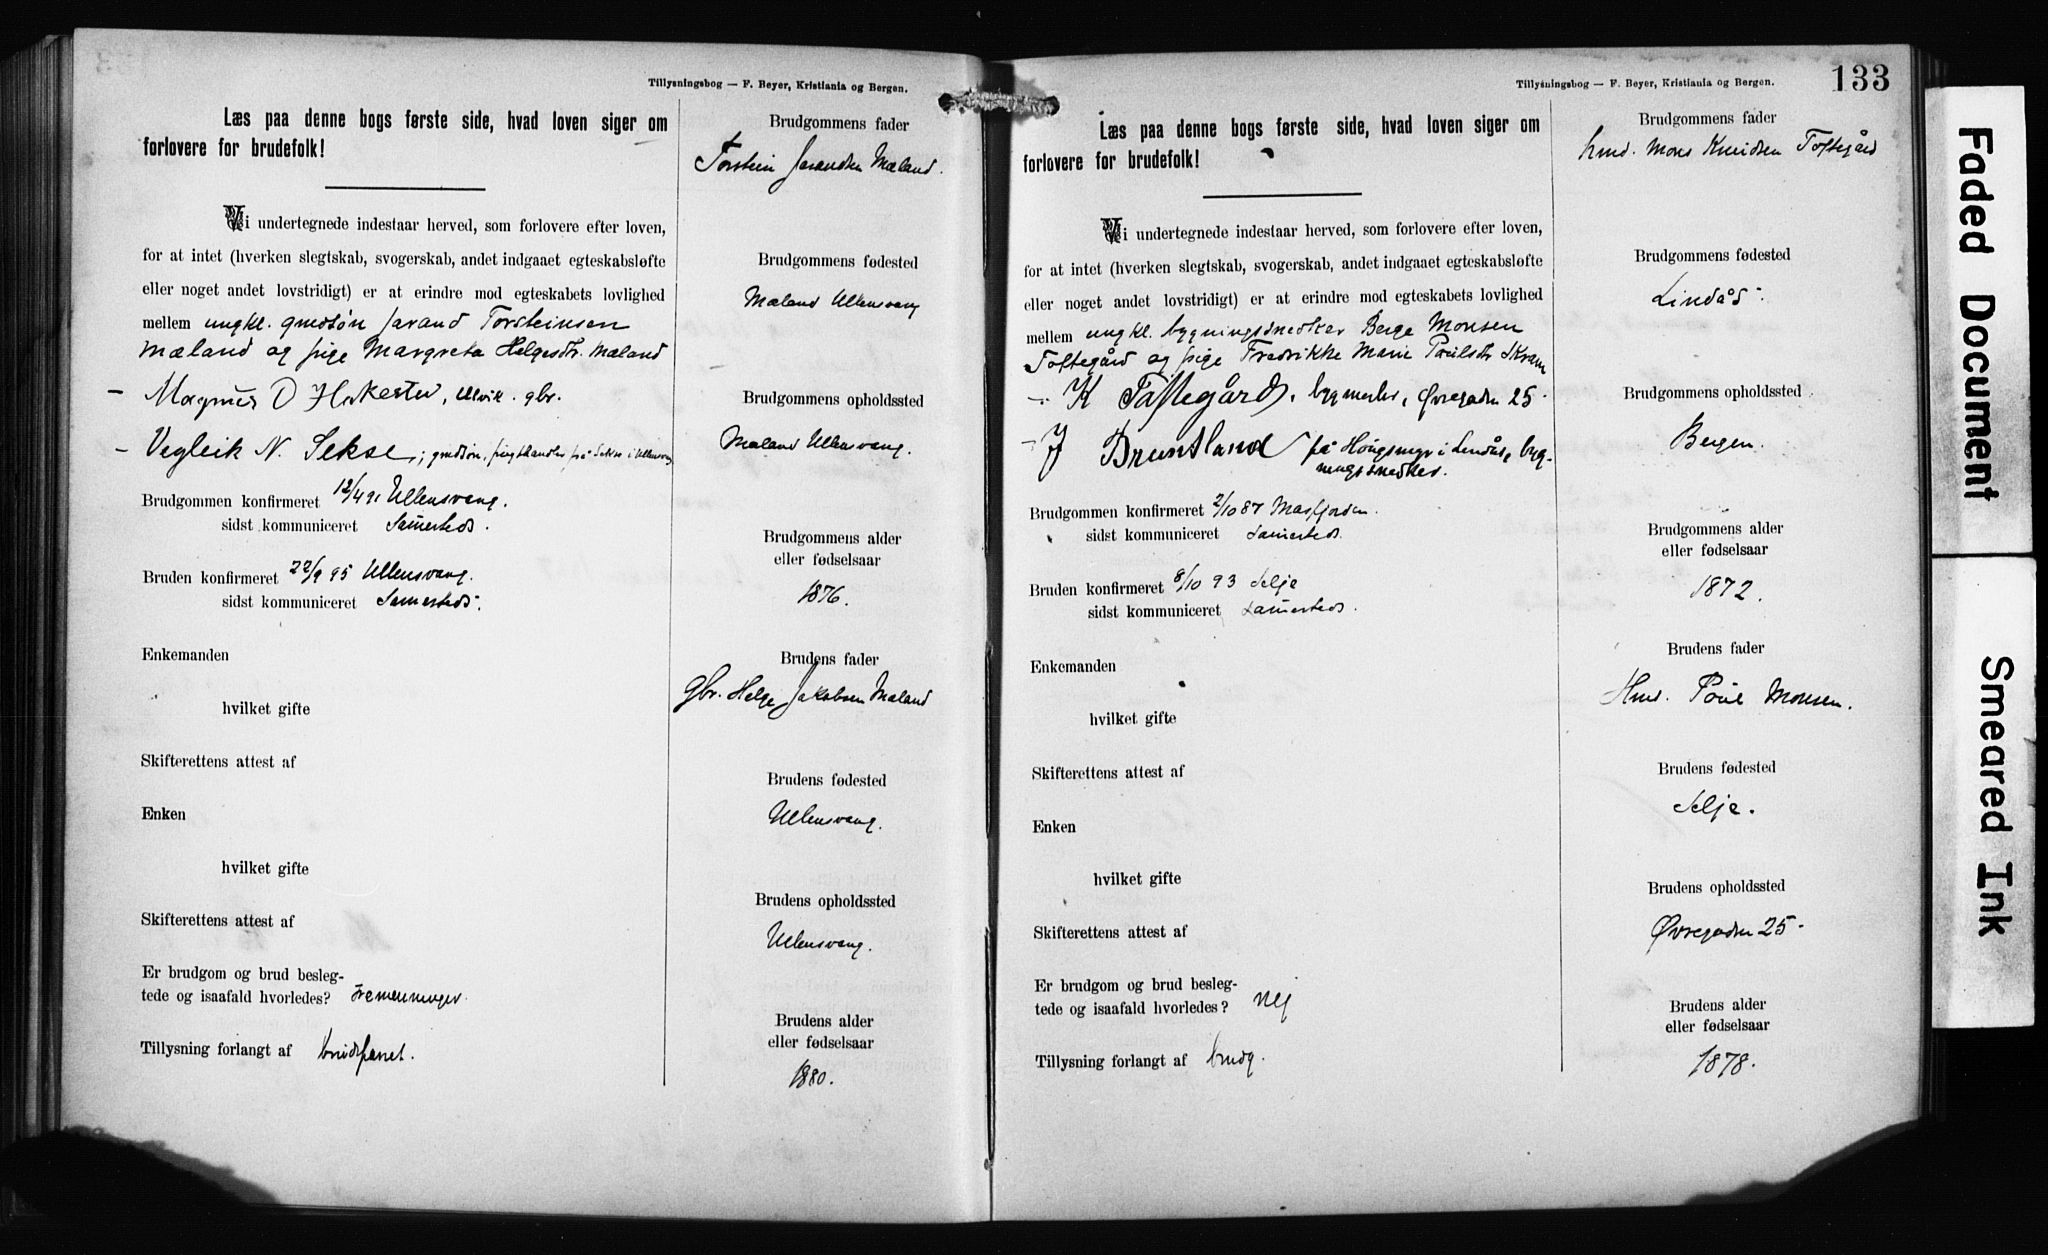 Tillysningsbog — F. Beyer, Kristiania og Bergen.
Læs paa denne bogs første side, hvad loven siger om
forlovere for brudefolk!
Vi undertegnede indestaar herved, som forlovere efter loven,
for at intet (hverken slegtskab, svogerskab, andet indgaaet egteskabsløfte
eller noget andet lovstridigt) er at erindre mod egteskabets lovlighed
mellem ungkl. gmdsøn Jarand Torsteinsen
Mæland og pige Margreta Helgesdtr. Mæland
- Magnus O Hakestad, Ulvik. gbr.
- Vegleik N. Sekse; gmdsøn, frugthandler på Sekse i Ullensvang
Brudgommen konfirmeret 12/4 91 Ullensvang.
sidst kommuniceret Samesteds.
Bruden konfirmeret 22/9 95 Ullensvang.
sidst kommuniceret Samesteds.
Enkemanden
hvilket gifte
Skifterettens attest af
Enken
hvilket gifte
Skifterettens attest af
Er brudgom og brud besleg-
tede og isaafald hvorledes? Tremenninger.
Tillysning forlangt af brudparret.
Brudgommens fader
Torstein Jarandsen Mæland.
Brudgommens fødested
Mæland Ullensvang
Brudgommens opholdssted
Mæland Ullensvang.
Brudgommens alder
eller fødselsaar
1876.
Brudens fader
gbr. Helge Jakobsen Mæland
Brudens fødested
Ullensvang.
Brudens opholdssted
Ullensvang.
Brudens alder
eller fødselsaar
1880.
Tillysningsbog — F. Beyer, Kristiania og Bergen.
133
Læs paa denne bogs første side, hvad loven siger om
forlovere for brudefolk!
Vi undertegnede indestaar herved, som forlovere efter loven,
for at intet (hverken slegtskab, svogerskab, andet indgaaet egteskabsløfte
eller noget andet lovstridigt) er at erindre mod egteskabets lovlighed
mellem ungkl. bygningssnedker Berge Monsen
Toftegård og pige Fredrikke Marie Paulsdtr Kram
- K Toftegård, bygmester, Øvregaden 25.
- J Bruntland på Haugsmyr i Lindås, byg-
ningssnedker.
Brudgommen konfirmeret 2/10 87 Masfjorden.
sidst kommuniceret Samesteds.
Bruden konfirmeret 8/10 93 Selje
sidst kommuniceret Samesteds.
Enkemanden
hvilket gifte
Skifterettens attest af
Enken
hvilket gifte
Skifterettens attest af
Er brudgom og brud besleg-
tede og isaafald hvorledes? nej
Tillysning forlangt af brudg.
Brudgommens fader
hmd. Mons Knudsen Toftegård
Brudgommens fødested
Lindås.
Brudgommens opholdssted
Bergen.
Brudgommens alder
eller fødselsaar
1872.
Brudens fader
Hmd. Poul Monsen.
Brudens fødested
Selje.
Brudens opholdssted
Øvregaden 25.
Brudens alder
eller fødselsaar
1878.
Faded Document
Smeared Ink